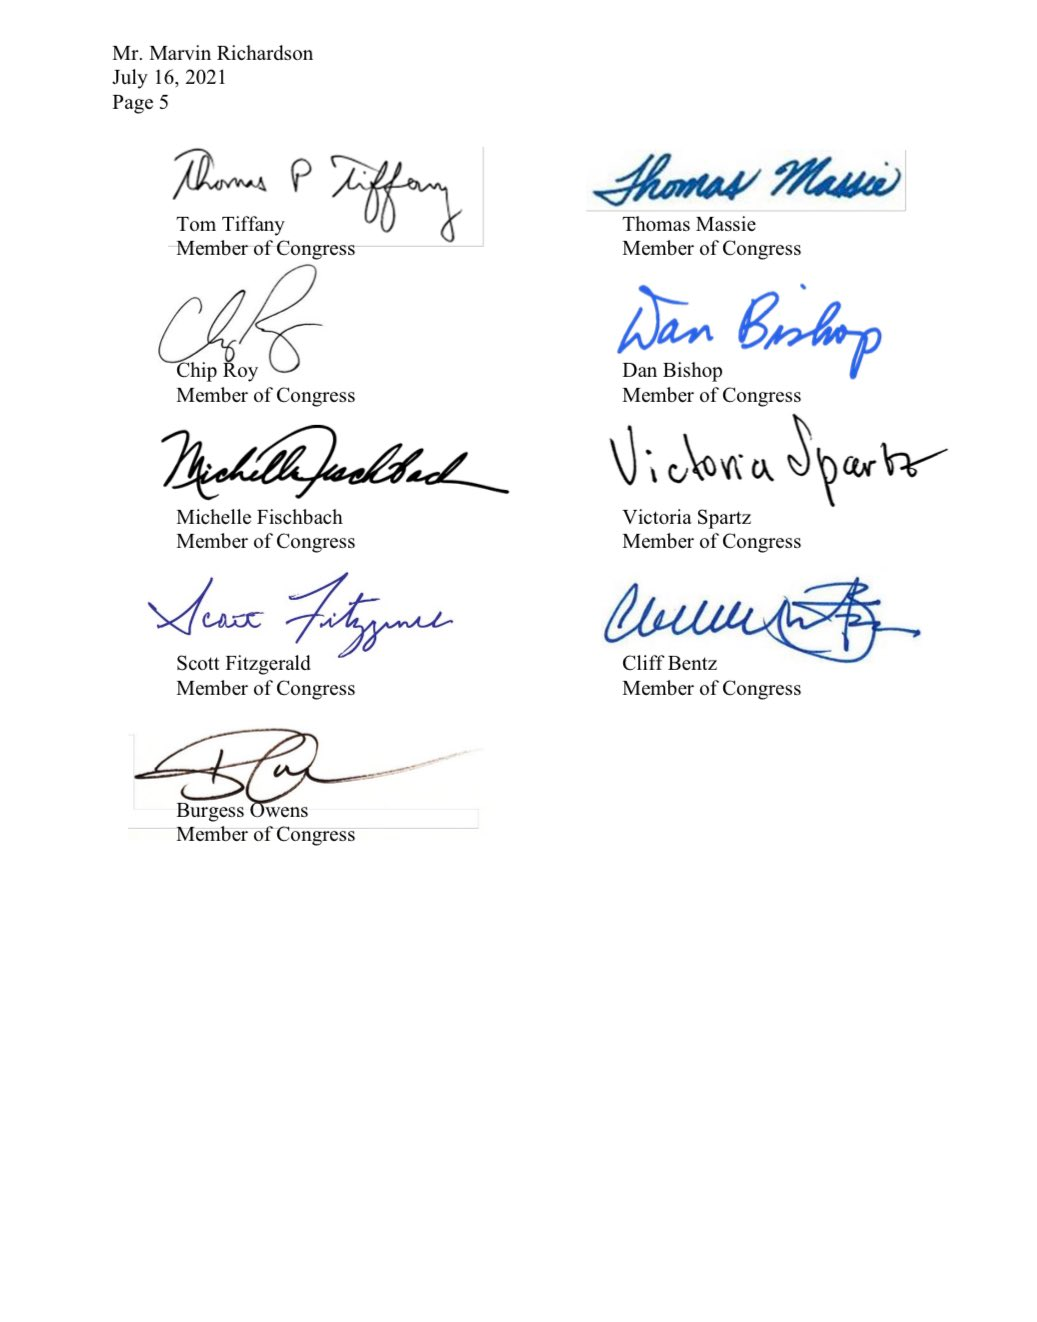 Mr. Marvin Richardson
July 16, 2021
Page 5
Thomas P Tiffany
Tom Tiffany
Member of Congress
Thomas Massie
Thomas Massie
Member of Congress
Chip Roy
Chip Roy
Member of Congress
Dan Bishop
Dan Bishop
Member of Congress
Michelle Fischbach
Michelle Fischbach
Member of Congress
Victoria Spartz
Victoria Spartz
Member of Congress
Scott Fitzgerald
Scott Fitzgerald
Member of Congress
Cliff Bentz
Member of Congress
Burgess Owens
Member of Congress